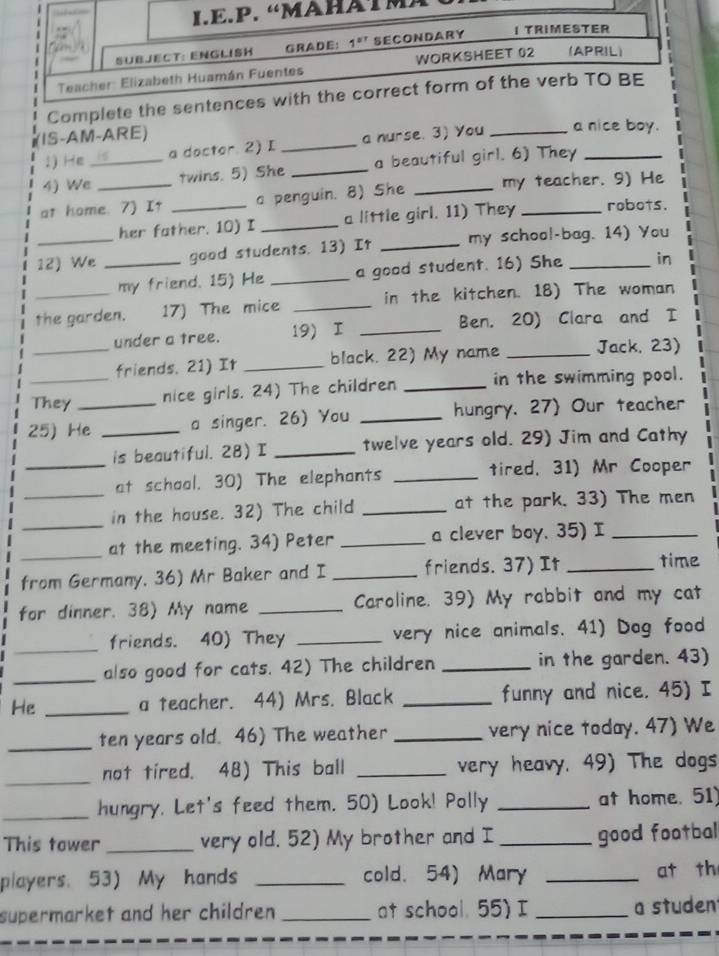 I.E.P. "MAHATMA
SUBJECT: ENGLISH GRADE: 1ST SECONDARY I TRIMESTER
Teacher: Elizabeth Huamán Fuentes WORKSHEET 02 (APRIL)
Complete the sentences with the correct form of the verb TO BE
(IS-AM-ARE)
1) He __is__ a doctor 2) I ________ a nurse. 3) You ________ a nice boy.
4) We ________ twins. 5) She ________ a beautiful girl. 6) They ________
at home. 7) It ________ a penguin. 8) She ________ my teacher. 9) He
________ her father. 10) I ________ a little girl. 11) They ________ robots.
12) We ________ good students. 13) It ________ my school-bag. 14) You
________ my friend. 15) He ________ a good student. 16) She ________ in
the garden. 17) The mice ________ in the kitchen. 18) The woman
________ under a tree. 19) I ________ Ben. 20) Clara and I
________ friends. 21) It ________ black. 22) My name ________ Jack. 23)
They ________ nice girls. 24) The children ________ in the swimming pool.
25) He ________ a singer. 26) You ________ hungry. 27) Our teacher
________ is beautiful. 28) I ________ twelve years old. 29) Jim and Cathy
________ at school. 30) The elephants ________ tired. 31) Mr Cooper
________ in the house. 32) The child ________ at the park. 33) The men
________ at the meeting. 34) Peter ________ a clever boy. 35) I ________
from Germany. 36) Mr Baker and I ________ friends. 37) It ________ time
for dinner. 38) My name ________ Caroline. 39) My rabbit and my cat
________ friends. 40) They ________ very nice animals. 41) Dog food
________ also good for cats. 42) The children ________ in the garden. 43)
He ________ a teacher. 44) Mrs. Black ________ funny and nice. 45) I
________ ten years old. 46) The weather ________ very nice today. 47) We
________ not tired. 48) This ball ________ very heavy. 49) The dogs
________ hungry. Let's feed them. 50) Look! Polly ________ at home. 51)
This tower ________ very old. 52) My brother and I ________ good footbal
players. 53) My hands ________ cold. 54) Mary ________ at th
supermarket and her children ________ at school. 55) I ________ a studen